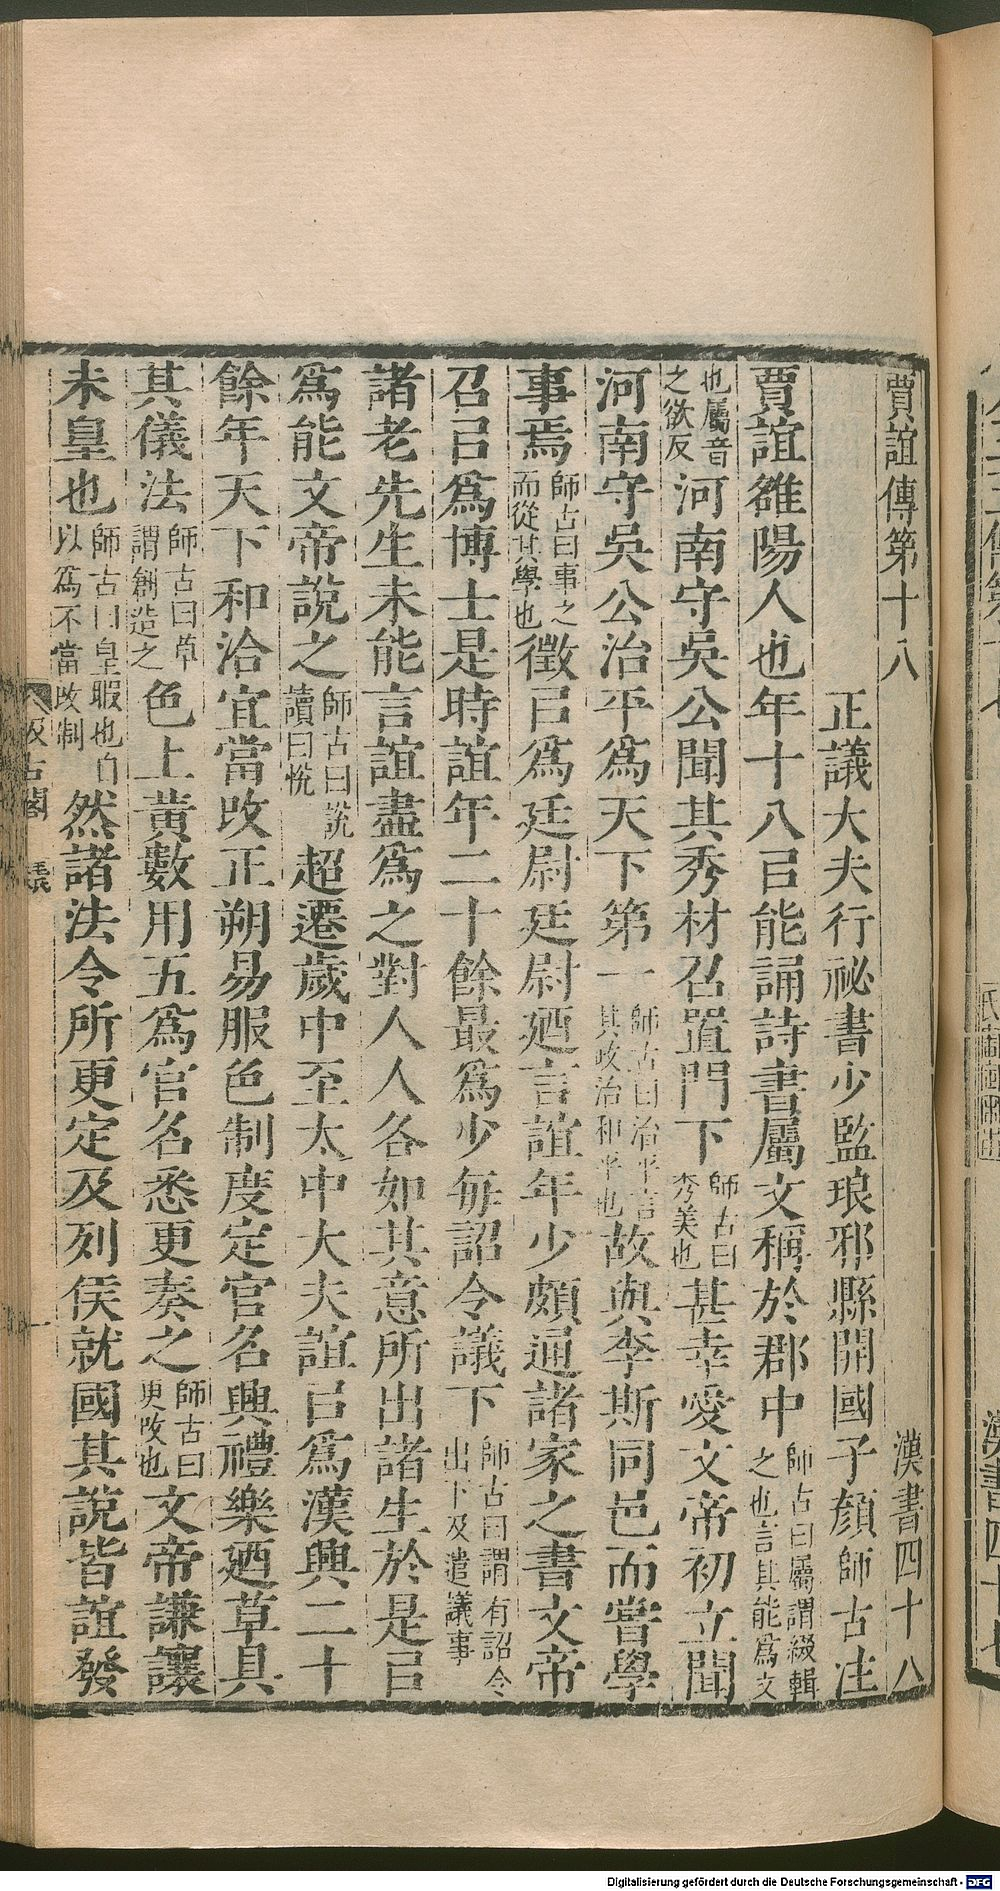 賈誼傳第十八　漢書四十八
正議大夫行祕書少監琅邪縣開國子顏師古注
賈誼雒陽人也年十八㠯能誦詩書屬文稱於郡中師古曰屬謂綴輯之也言其能爲文
也屬音之欲反河南守吳公聞其秀材召置門下師古曰秀美也甚幸愛文帝初立聞
河南守吳公治平爲天下第一師古曰治平言其政治和平也故與李斯同邑而嘗學
事焉師古曰事之而從其學也徵㠯爲廷尉廷尉廼言誼年少頗通諸家之書文帝
召㠯爲博士是時誼年二十餘最爲少每詔令議下師古曰謂有詔令出下及遣議事
諸老先生未能言誼盡爲之對人人各如其意所出諸生於是㠯
爲能文帝說之師古曰說讀曰悅超遷歲中至太中大夫誼㠯爲漢興二十
餘年天下和洽宜當改正朔易服色制度定官名興禮樂廼草具
其儀法師古曰草謂創造之色上黃數用五爲官名悉更奏之師古曰更改也文帝謙讓
未皇也師古曰皇暇也自以爲不當改制然諸法令所更定及列侯就國其說皆誼發
汲古閣
漢書四十七
Digitalisierung gefördert durch die Deutsche Forschungsgemeinschaft - DFG